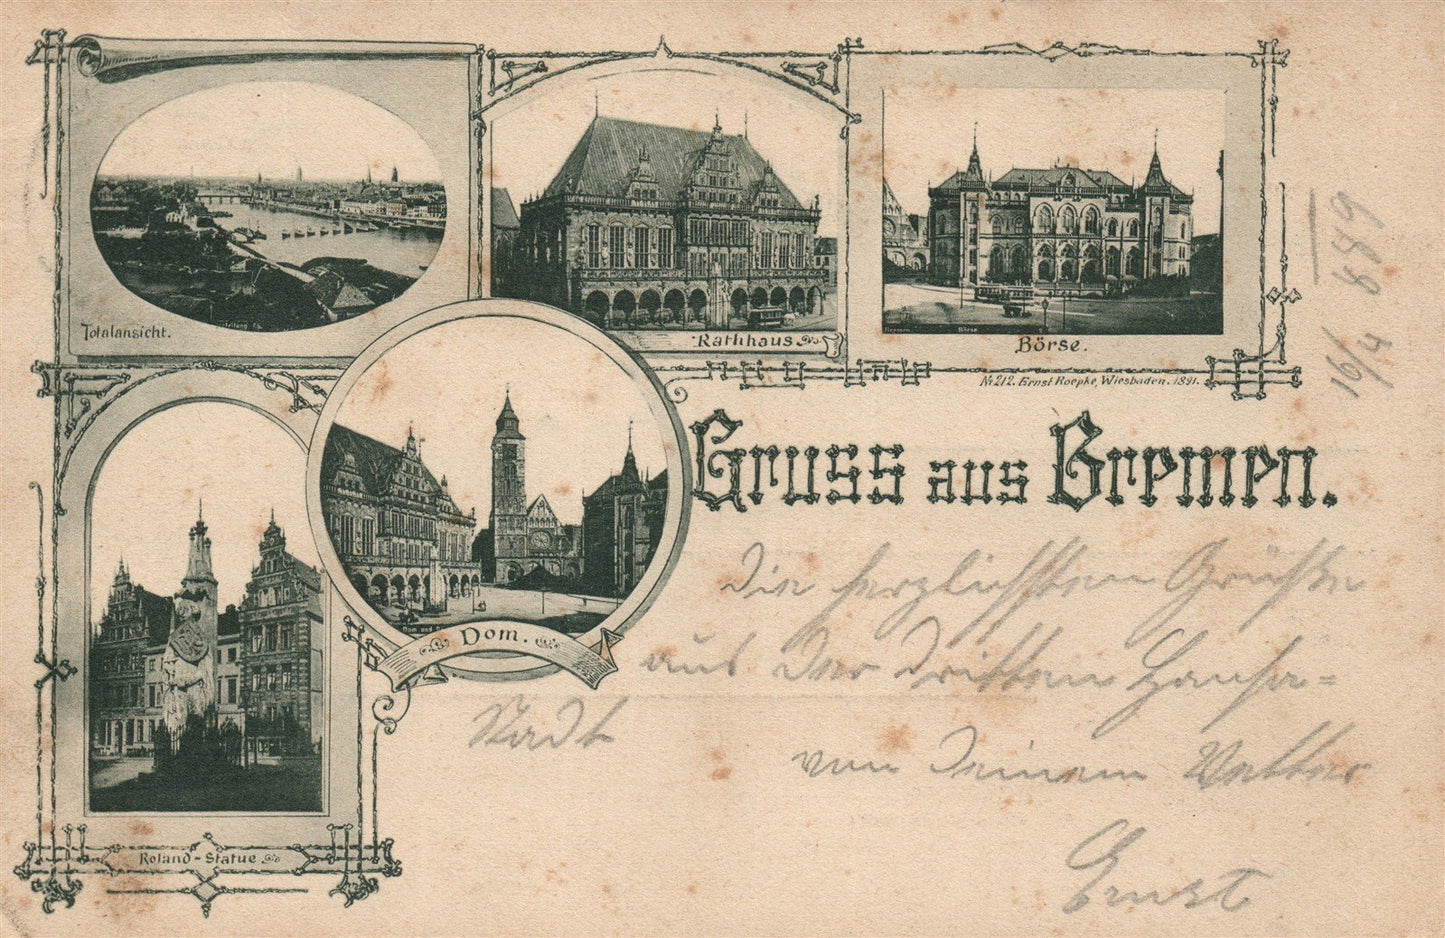 Totalansicht.
Rathhaus
Börse.
Bremen Börse
No 212. Ernst Roepke, Wiesbaden. 1891.
16/4 889
Dom.
Gruss aus Bremen.
Die herzlichsten Grüße
aus der dritten Hansa=
Stadt
von Deinem Vetter
Ernst
Roland-Statue